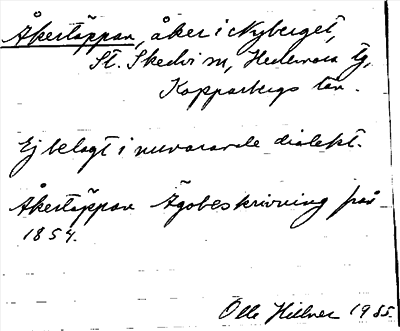 Åkertäppan, åker i Nyberget,
St. Skedvi sn, Hedemora tg,
Kopparbergs län.
Ej belagt i nuvarande dialekt.
Åkertäppan Ägobeskrivning från
1854.
Olle Hillner 1935.